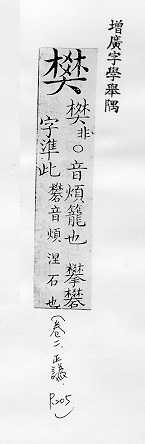 增廣字學舉隅
樊
樊非○音煩籠也 攀礬
字準此 礬音煩 涅石也
(卷二、正譌、P.205)